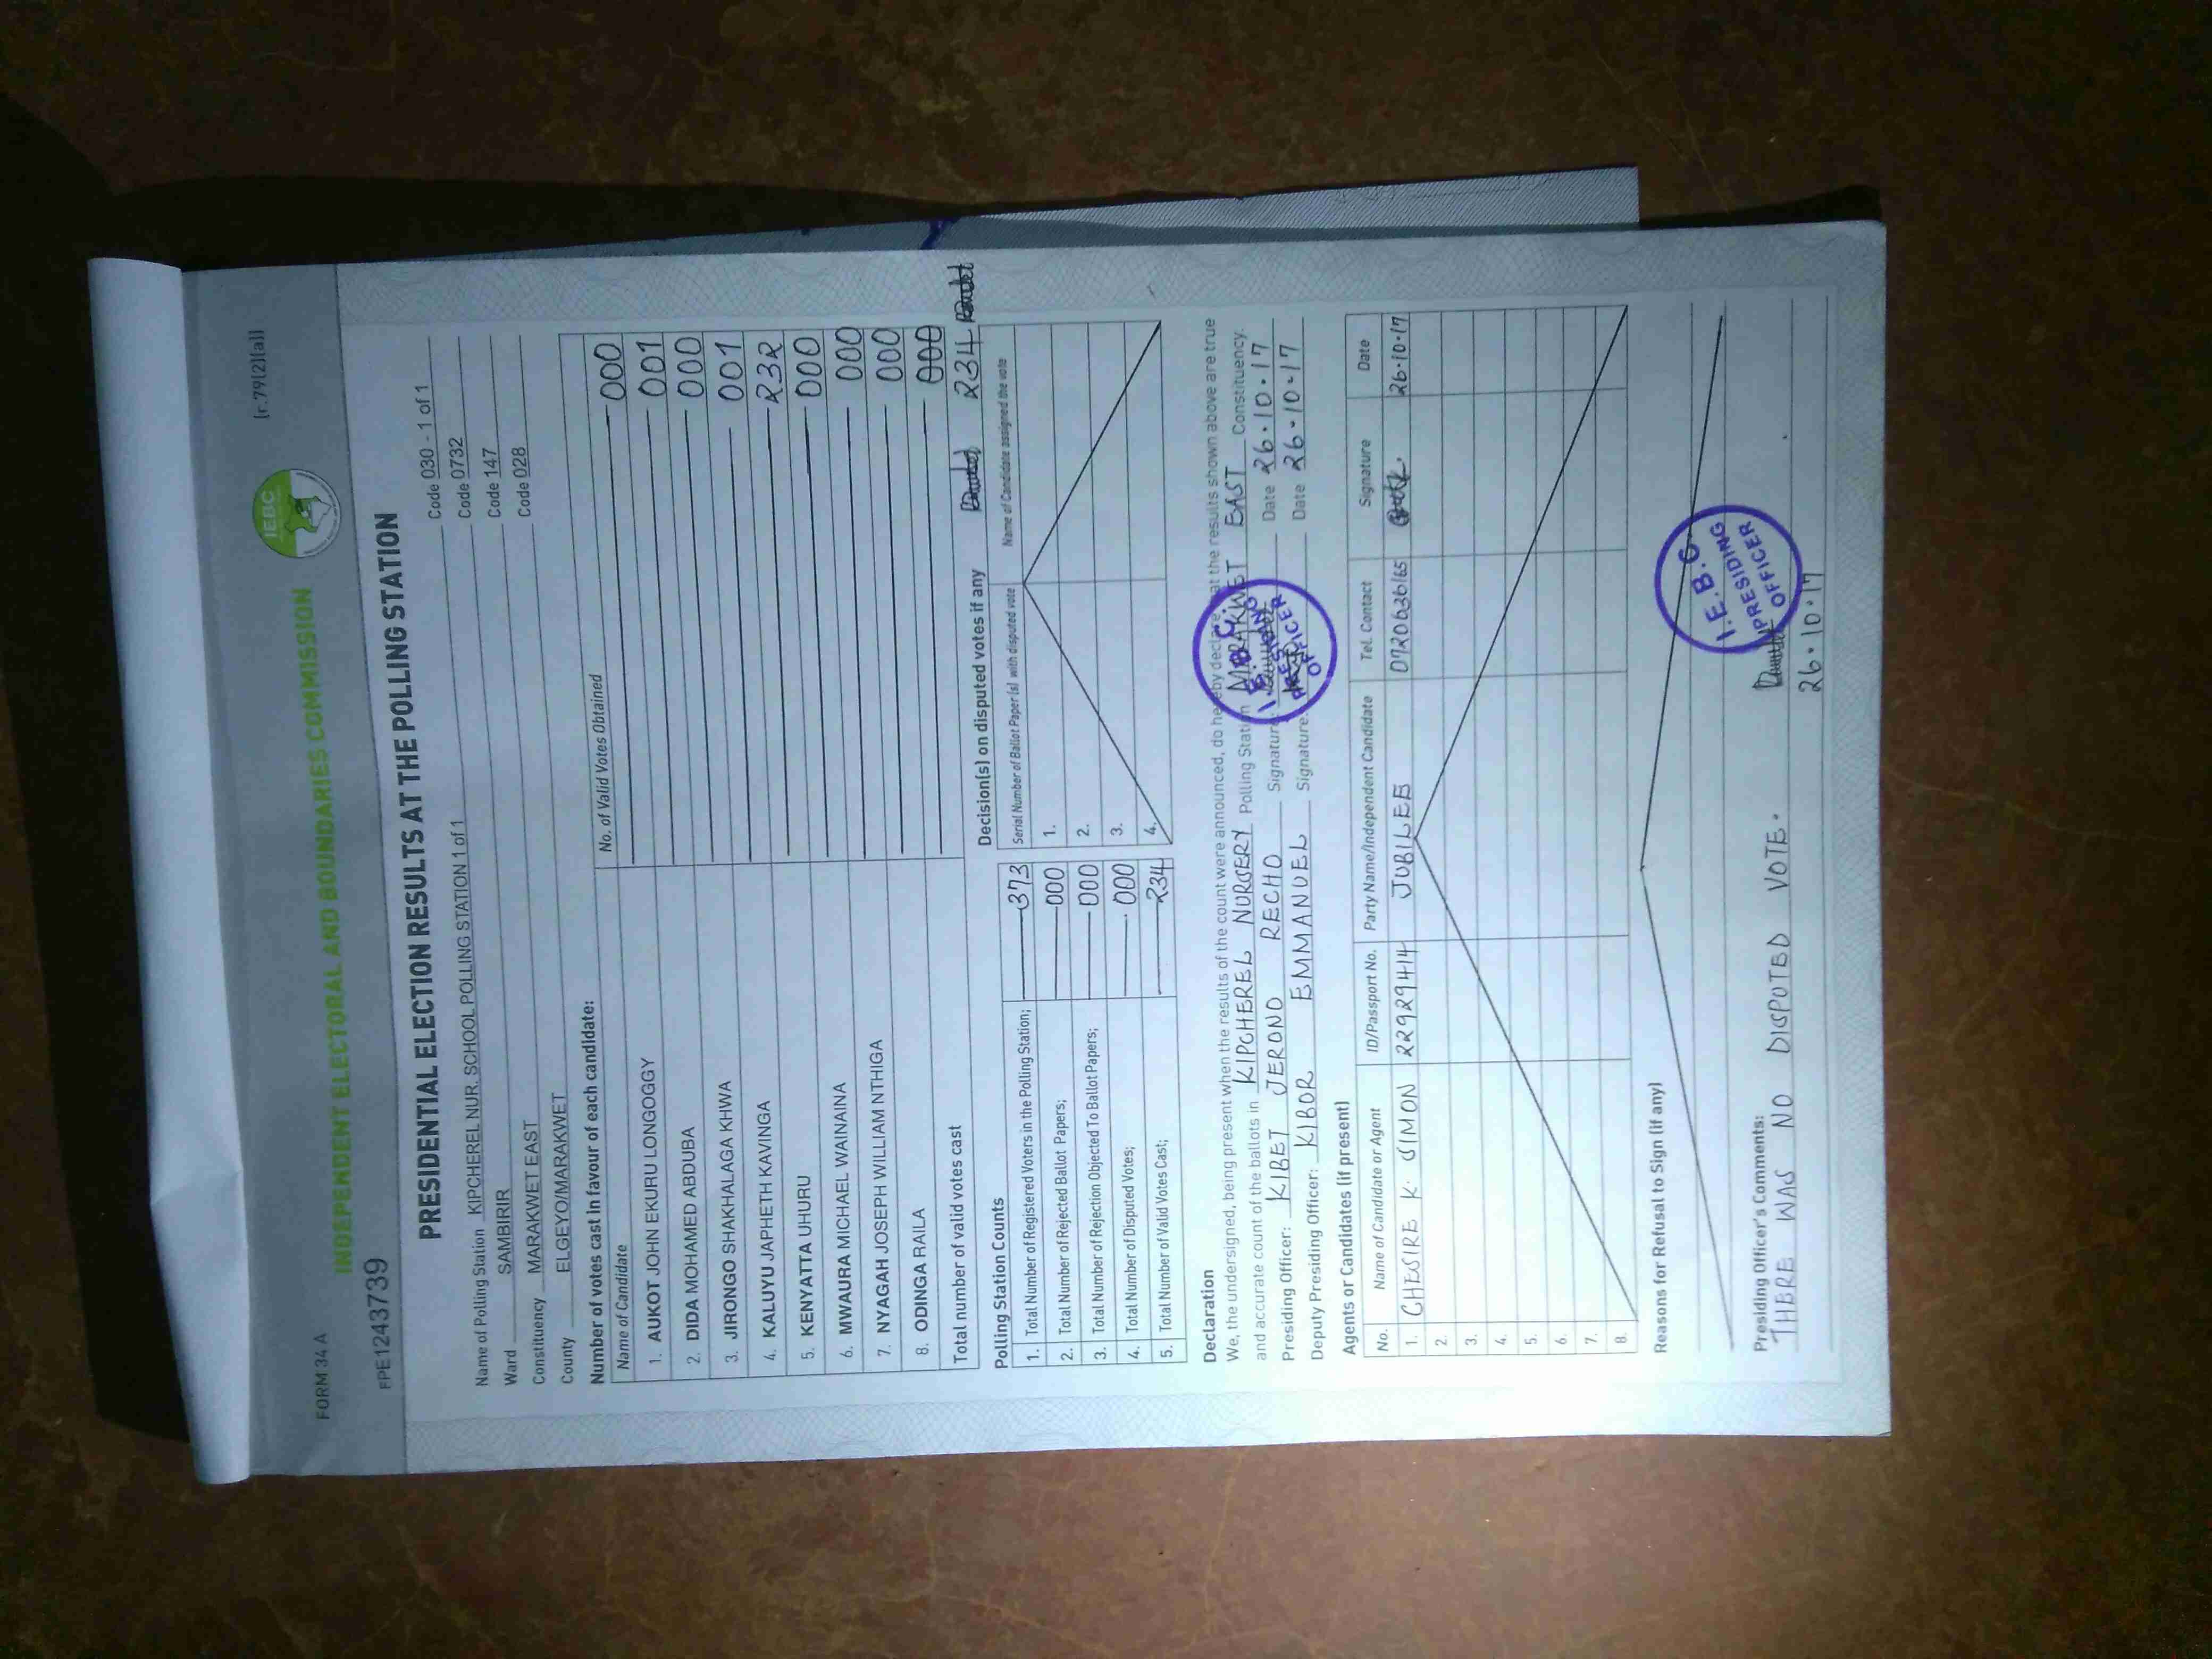 FORM 34 A
IEBC
(r.79(2)(a))
INDEPENDENT ELECTORAL AND BOUNDARIES COMMISSION
FPE1243739
PRESIDENTIAL ELECTION RESULTS AT THE POLLING STATION
Name of Polling Station KIPCHEREL NUR. SCHOOL POLLING STATION 1 of 1 Code 030 - 1 of 1
Ward SAMBIRIR Code 0732
Constituency MARAKWET EAST Code 147
County ELGEYO/MARAKWET Code 028
Number of votes cast in favour of each candidate:
Name of Candidate No. of Valid Votes Obtained
1. AUKOT JOHN EKURU LONGOGGY 000
2. DIDA MOHAMED ABDUBA 001
3. JIRONGO SHAKHALAGA KHWA 000
4. KALUYU JAPHETH KAVINGA 001
5. KENYATTA UHURU 232
6. MWAURA MICHAEL WAINAINA 000
7. NYAGAH JOSEPH WILLIAM NTHIGA 000
8. ODINGA RAILA 000
Total number of valid votes cast 000
234
Polling Station Counts
1. Total Number of Registered Voters in the Polling Station; 373
2. Total Number of Rejected Ballot Papers; 000
3. Total Number of Rejection Objected To Ballot Papers; 000
4. Total Number of Disputed Votes; 000
5. Total Number of Valid Votes Cast; 234
Decision(s) on disputed votes if any
Serial Number of Ballot Paper(s) with disputed vote Name of Candidate assigned the vote
1.
2.
3.
4.
Declaration
We, the undersigned, being present when the results of the count were announced, do hereby declare that the results shown above are true
and accurate count of the ballots in KIPCHEREL NURSERY Polling Station MARAKWET EAST Constituency.
Presiding Officer: KIBET JERONO RECHO Signature: Date 26.10.17
Deputy Presiding Officer: KIBOR EMMANUEL Signature: Date 26.10.17
I.E.B.C.
PRESIDING
OFFICER
Agents or Candidates (if present)
No. Name of Candidate or Agent ID/Passport No. Party Name/Independent Candidate Tel. Contact Signature Date
1. CHESIRE K. SIMON 22929414 JUBILEE 0720636165 26.10.17
2.
3.
4.
5.
6.
7.
8.
Reasons for Refusal to Sign (if any)
I.E.B.C.
PRESIDING
OFFICER
Presiding Officer's Comments:
THERE WAS NO DISPUTED VOTE.
26.10.17